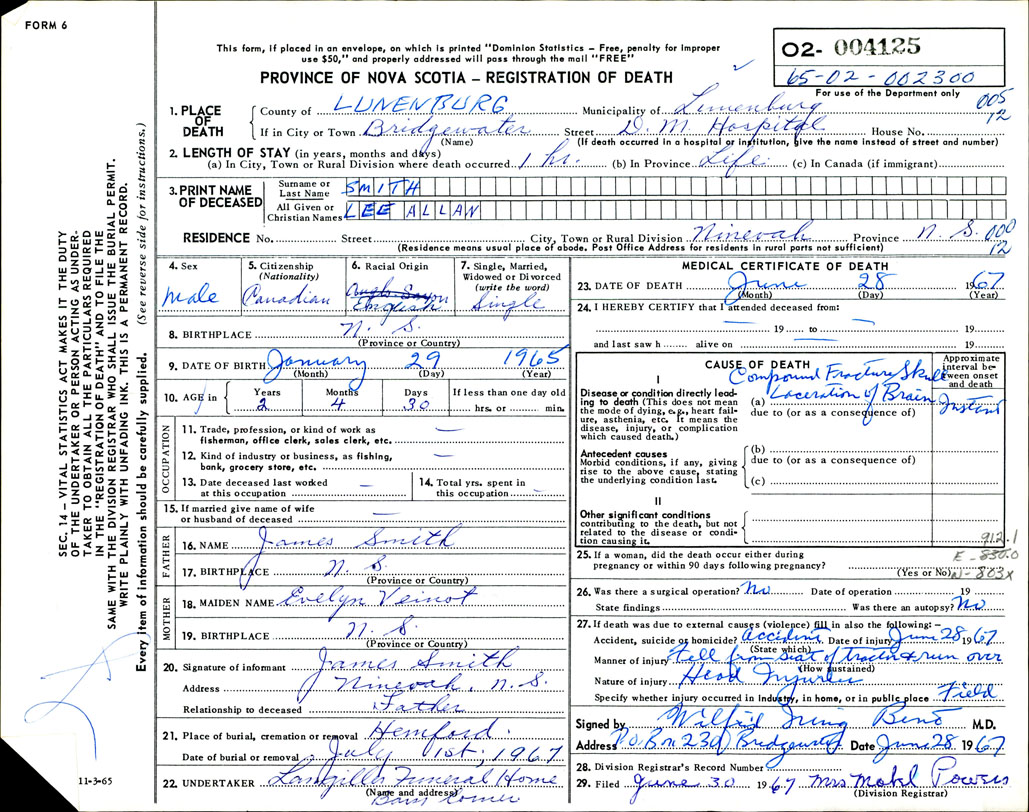 FORM 6
This form, if placed in an envelope, on which is printed "Dominion Statistics – Free, penalty for improper
use $50," and properly addressed will pass through the mail "FREE"
PROVINCE OF NOVA SCOTIA – REGISTRATION OF DEATH
02- 004125
65-02-002300
For use of the Department only
005
12
1. PLACE OF DEATH
County of LUNENBURG Municipality of Lunenburg
If in City or Town Bridgewater Street D. M. Hospital House No.
(Name) (If death occurred in a hospital or institution, give the name instead of street and number)
2. LENGTH OF STAY (in years, months and days)
(a) In City, Town or Rural Division where death occurred 1 hr. (b) In Province Life (c) In Canada (if immigrant)
3. PRINT NAME OF DECEASED
Surname or Last Name SMITH
All Given or Christian Names LEE ALLAN
RESIDENCE No. Street City, Town or Rural Division Ninevah Province N. S. 000
12
(Residence means usual place of abode. Post Office Address for residents in rural parts not sufficient)
4. Sex
male
5. Citizenship
(Nationality)
Canadian
6. Racial Origin
English
7. Single, Married,
Widowed or Divorced
(write the word)
Single
8. BIRTHPLACE N. S.
(Province or Country)
9. DATE OF BIRTH January 29 1965
(Month) (Day) (Year)
10. AGE in
Years Months Days If less than one day old
2 4 30 hrs. or min.
OCCUPATION
11. Trade, profession, or kind of work as
fisherman, office clerk, sales clerk, etc. —
12. Kind of industry or business, as fishing,
bank, grocery store, etc. —
13. Date deceased last worked
at this occupation —
14. Total yrs. spent in
this occupation —
15. If married give name of wife
or husband of deceased —
FATHER
16. NAME James Smith
17. BIRTHPLACE N. S.
(Province or Country)
MOTHER
18. MAIDEN NAME Evelyn Veinot
19. BIRTHPLACE N. S.
(Province or Country)
20. Signature of informant James Smith
Address Ninevah, N. S.
Relationship to deceased Father
21. Place of burial, cremation or removal Hemford.
Date of burial or removal July 1st, 1967
22. UNDERTAKER Langille's Funeral Home
(Name and address)
Barss Corner
MEDICAL CERTIFICATE OF DEATH
23. DATE OF DEATH June 28 1967
(Month) (Day) (Year)
24. I HEREBY CERTIFY that I attended deceased from:
— 19 — to — 19
and last saw h alive on — 19
CAUSE OF DEATH
Approximate interval between onset and death
I
Disease or condition directly leading to death (This does not mean
the mode of dying, e.g., heart failure, asthenia, etc. It means the
disease, injury, or complication
which caused death.)
Compound Fracture Skull
(a) Laceration of Brain Instant
due to (or as a consequence of)
Antecedent causes
Morbid conditions, if any, giving
rise to the above cause, stating
the underlying condition last.
(b)
due to (or as a consequence of)
(c)
II
Other significant conditions
contributing to the death, but not
related to the disease or condition causing it.
912.1
E - 830.0
N - 803x
25. If a woman, did the death occur either during
pregnancy or within 90 days following pregnancy?
(Yes or No)
26. Was there a surgical operation? No Date of operation 19
State findings Was there an autopsy? No
27. If death was due to external causes (violence) fill in also the following:–
Accident, suicide or homicide? Accident Date of injury June 28 1967
(State which)
Manner of injury Fell from seat of tractor & run over
(How sustained)
Nature of injury Head Injuries
Specify whether injury occurred in industry, in home, or in public place Field
Signed by Wilfrid Irving M.D.
Address P.O. Box 230 Bridgewater Date June 28 1967
28. Division Registrar's Record Number
29. Filed June 30 1967 Mrs Powers
(Division Registrar)
SEC. 14 – VITAL STATISTICS ACT MAKES IT THE DUTY
OF THE UNDERTAKER OR PERSON ACTING AS UNDER-
TAKER TO OBTAIN ALL THE PARTICULARS REQUIRED
IN THE "REGISTRATION OF DEATH" AND TO FILE THE
SAME WITH THE DIVISION REGISTRAR WHO SHALL ISSUE THE BURIAL PERMIT.
WRITE PLAINLY WITH UNFADING INK. THIS IS A PERMANENT RECORD.
Every item of information should be carefully supplied. (See reverse side for instructions.)
11-3-65